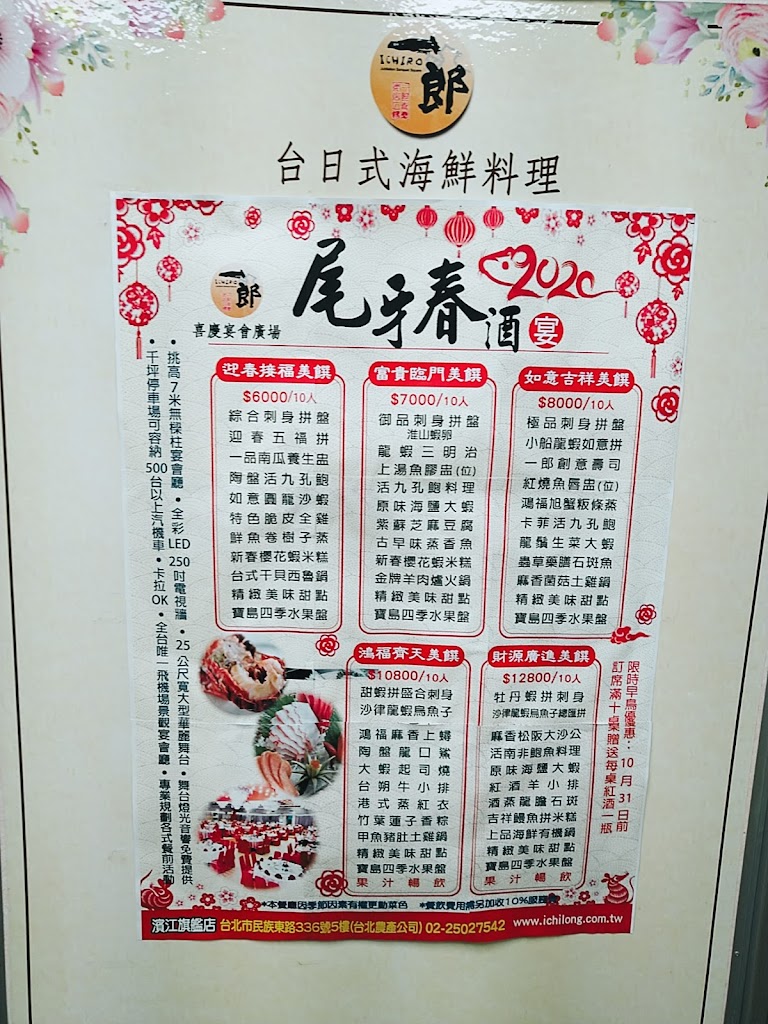 ICHIRO
一郎
台日式海鮮料理
一郎
喜慶宴會廣場
尾牙春酒宴
2020
• 挑高7米無樑柱宴會廳 • 全彩LED 250吋電視牆 • 25公尺寬大型華麗舞台 • 舞台燈光音響免費提供
• 千坪停車場可容納500台以上汽機車 • 卡拉OK • 全台唯一飛機場景觀宴會廳 • 專業規劃各式餐前活動
迎春接福美饌
$6000/10人
綜合刺身拼盤
迎春五福拼
一品南瓜養生盅
陶盤活九孔鮑
如意圓龍沙蝦
特色脆皮全雞
鮮魚卷樹子蒸
新春櫻花蝦米糕
台式干貝西魯鍋
精緻美味甜點
寶島四季水果盤
富貴臨門美饌
$7000/10人
御品刺身拼盤
淮山蝦卵
龍蝦三明治
上湯魚膠盅(位)
活九孔鮑料理
原味海鹽大蝦
紫蘇芝麻豆腐
古早味蒸香魚
新春櫻花蝦米糕
金牌羊肉爐火鍋
精緻美味甜點
寶島四季水果盤
如意吉祥美饌
$8000/10人
極品刺身拼盤
小船龍蝦如意拼
一郎創意壽司
紅燒魚唇盅(位)
鴻福旭蟹粄條蒸
卡菲活九孔鮑
龍鬚生菜大蝦
蟲草藥膳石斑魚
麻香菌菇土雞鍋
精緻美味甜點
寶島四季水果盤
鴻福齊天美饌
$10800/10人
甜蝦拼盛合刺身
沙律龍蝦烏魚子
鴻福麻香上蟳
陶盤龍口鯊
大蝦起司燒
台朔牛小排
港式蒸紅衣
竹葉蓮子香粽
甲魚豬肚土雞鍋
精緻美味甜點
寶島四季水果盤
果汁暢飲
財源廣進美饌
$12800/10人
牡丹蝦拼刺身
沙律龍蝦烏魚子總匯拼
麻香松阪大沙公
活南非鮑魚料理
原味海鹽大蝦
紅酒羊小排
酒蒸龍膽石斑
吉祥鰻魚拼米糕
上品海鮮有機鍋
精緻美味甜點
寶島四季水果盤
果汁暢飲
限時早鳥優惠：10月31日前
訂席滿十桌贈送每桌紅酒一瓶
*本餐廳因季節因素有權更動菜色 *餐飲費用需另加收10%服務費
濱江旗艦店 台北市民族東路336號5樓(台北農產公司) 02-25027542 www.ichilong.com.tw